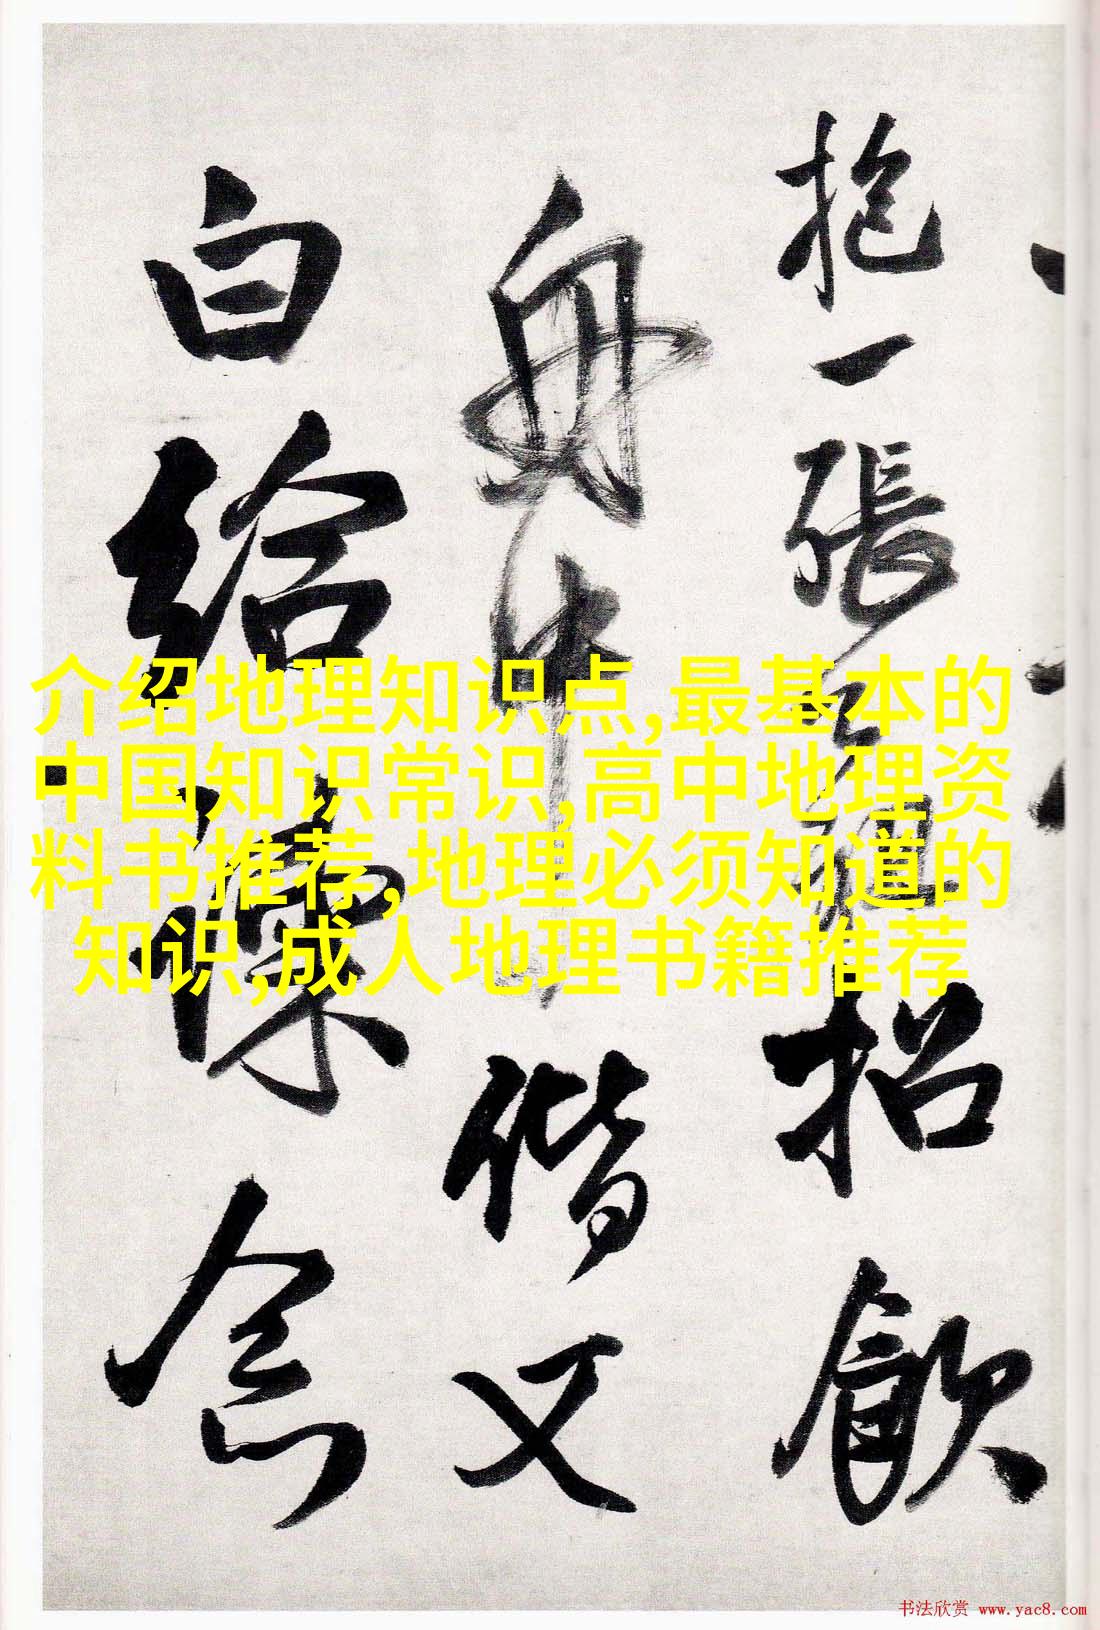 抱一張
招飲
舟中
偕又
白給諫
念
介绍地理知识点,最基本的
中国知识常识,高中地理资
料书推荐,地理必须知道的
知识,成人地理书籍推荐
书法欣赏 www.yac8.com